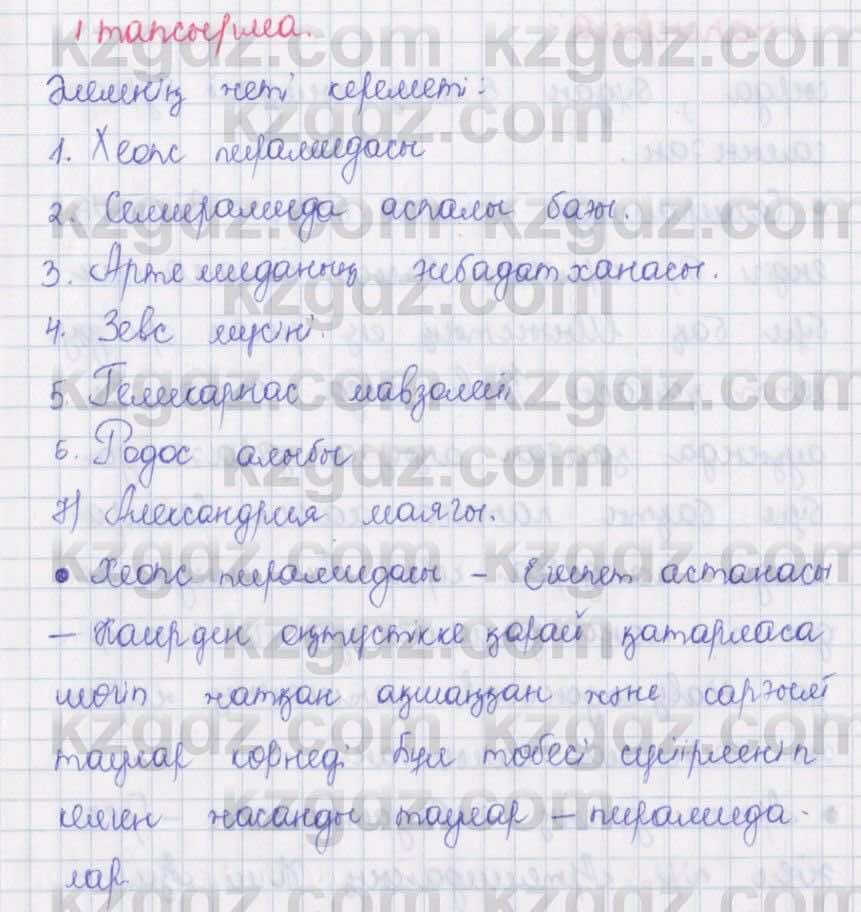 1 тапсырма.
Әлемнің жеті кереметі:
1. Хеопс пирамидасы
2. Семирамида аспалы бағы.
3. Артемиданың ғибадатханасы.
4. Зевс мүсіні.
5. Геликарнас мавзолейі
6. Родос алыбы
7) Александрия маягы.
• Хеопс пирамидасы – Египет астанасы
– Каирден оңтүстікке қарай қатарласа
шөйп жатқан ақшаңқан және сарғылт
таулар корнеді Бұл төбесі сүйірленіп
келген жасанды таулар – пирамида-
лар.
kzgdz.com